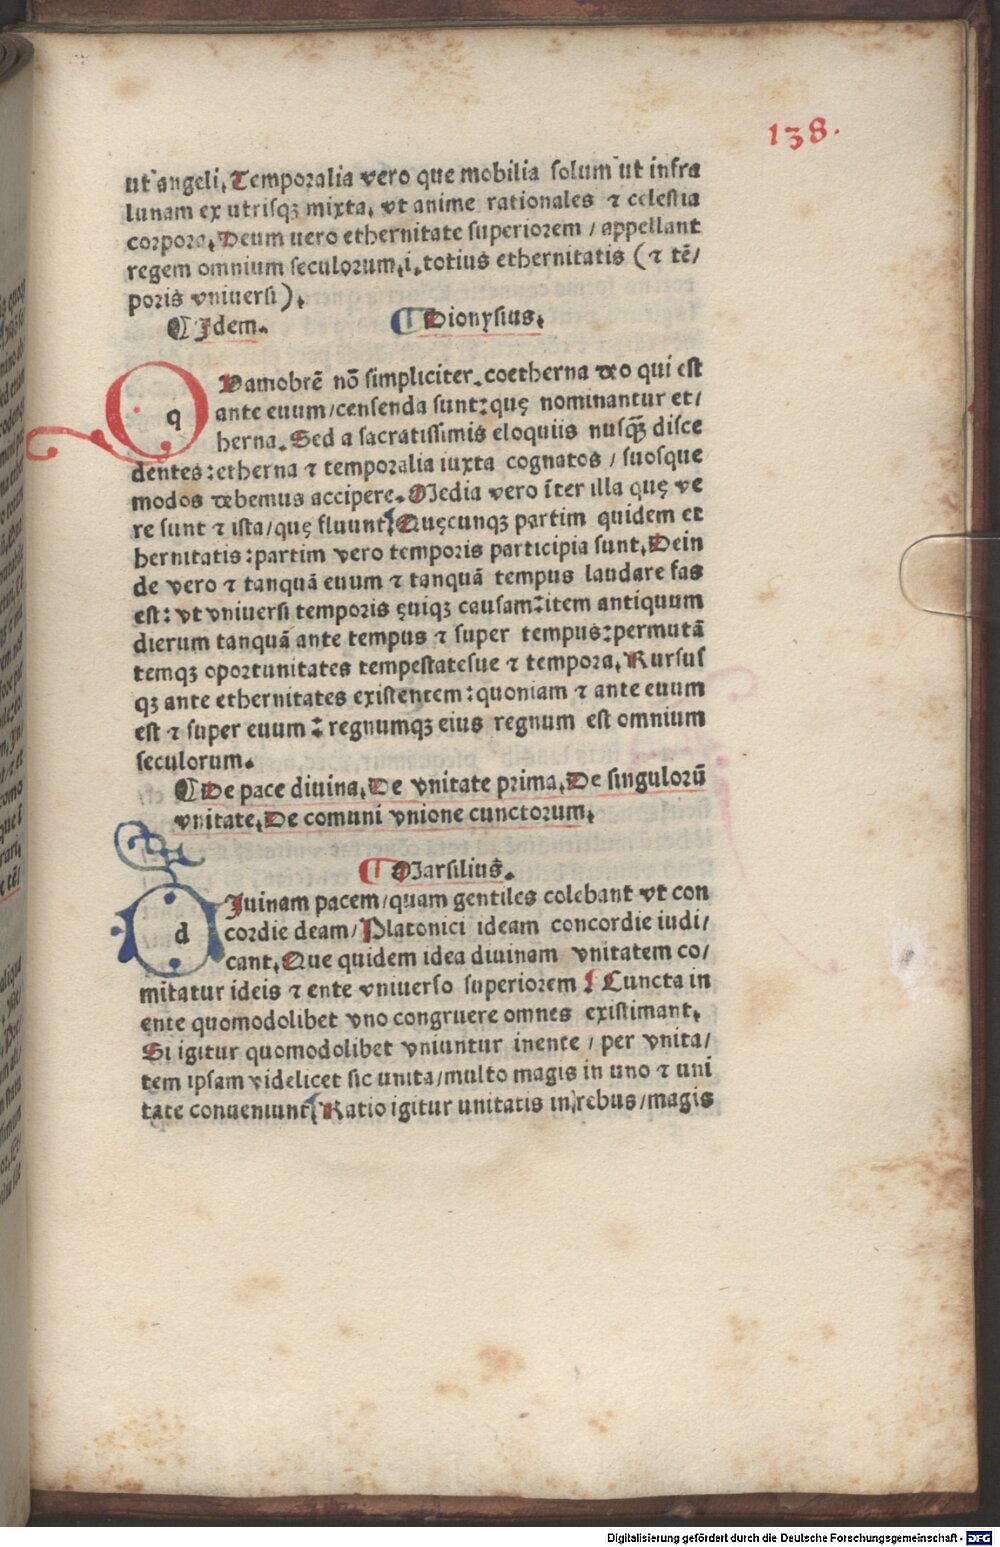 138.
ut angeli. Temporalia vero que mobilia solum ut infra
lunam ex utrisqꝫ mixta. vt anime rationales ⁊ celestia
corpora. Deum uero ethernitate superiorem / appellant
regem omnium seculorum.i. totius ethernitatis (⁊ tē/
poris vniuersi).
¶ Idem. ¶ Dionysius.
q Vamobrē nō simpliciter coetherna deo qui est
ante euum/censenda sunt: quę nominantur et/
herna. Sed a sacratissimis eloquiis nusqꝫ̃ disce
dentes: etherna ⁊ temporalia iuxta cognatos / suosque
modos debemus accipere. Media vero īter illa quę ve
re sunt ⁊ ista/quę fluunt. Quęcunqꝫ partim quidem et
hernitatis: partim vero temporis participia sunt. Dein
de vero ⁊ tanquā euum ⁊ tanquā tempus laudare fas
est: vt vniuersi temporis ęuiqꝫ causam: item antiquum
dierum tanquā ante tempus ⁊ super tempus: permutā
temqꝫ oportunitates tempestatesue ⁊ tempora. Rursus
qꝫ ante ethernitates existentem: quoniam ⁊ ante euum
est ⁊ super euum: regnumqꝫ eius regnum est omnium
seculorum.
¶ De pace diuina. De vnitate prima. De singulorū
vnitate. De comuni vnione cunctorum.
¶ Marsilius.
d Iuinam pacem/quam gentiles colebant vt con
cordie deam/Platonici ideam concordie iudi/
cant. Que quidem idea diuinam vnitatem co/
mitatur ideis ⁊ ente vniuerso superiorem. Cuncta in
ente quomodolibet vno congruere omnes existimant.
Si igitur quomodolibet vniuntur inente / per vnita/
tem ipsam videlicet sic unita/multo magis in uno ⁊ uni
tate conueniunt. Ratio igitur unitatis in rebus/magis
Digitalisierung gefördert durch die Deutsche Forschungsgemeinschaft - DFG